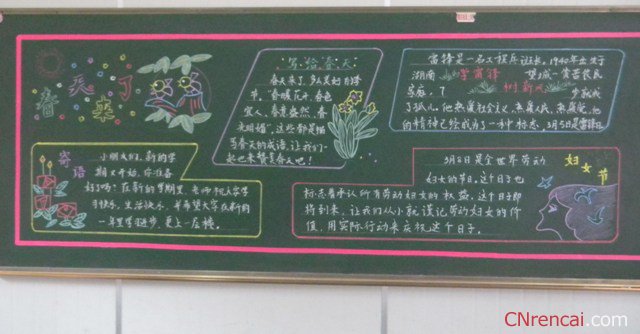 春天来了
写给春天
春天来了,
节,"春暖花开、春色
宜人、春意盎然、春
光明媚",这些都是描
写春天的成语,让我们一
起也来赞美春天吧!
雷锋是一名工程兵班长,1940年出生于
湖南 学雷锋 望城一贫苦农民
家庭,7 树新风 岁就成
了孤儿。他热爱社会主义、热爱人民、热爱党,他
的精神已经成为了一种标志,3月5号是雷锋日
寄语
小朋友们,新的学
期又开始,你准备
好了吗?在新的学期里,老师祝大家学
习快乐,生活快乐,并希望大家在新的
一年里学习进步,更上一层楼。
3月8日是全世界劳动
妇女节
妇女的节日,这个日子也
标志着承认所有劳动妇女的权益。这个日子即
将到来,让我们从小就谨记劳动妇女的价
值,用实际行动来庆祝这个日子。
CNrencai.com